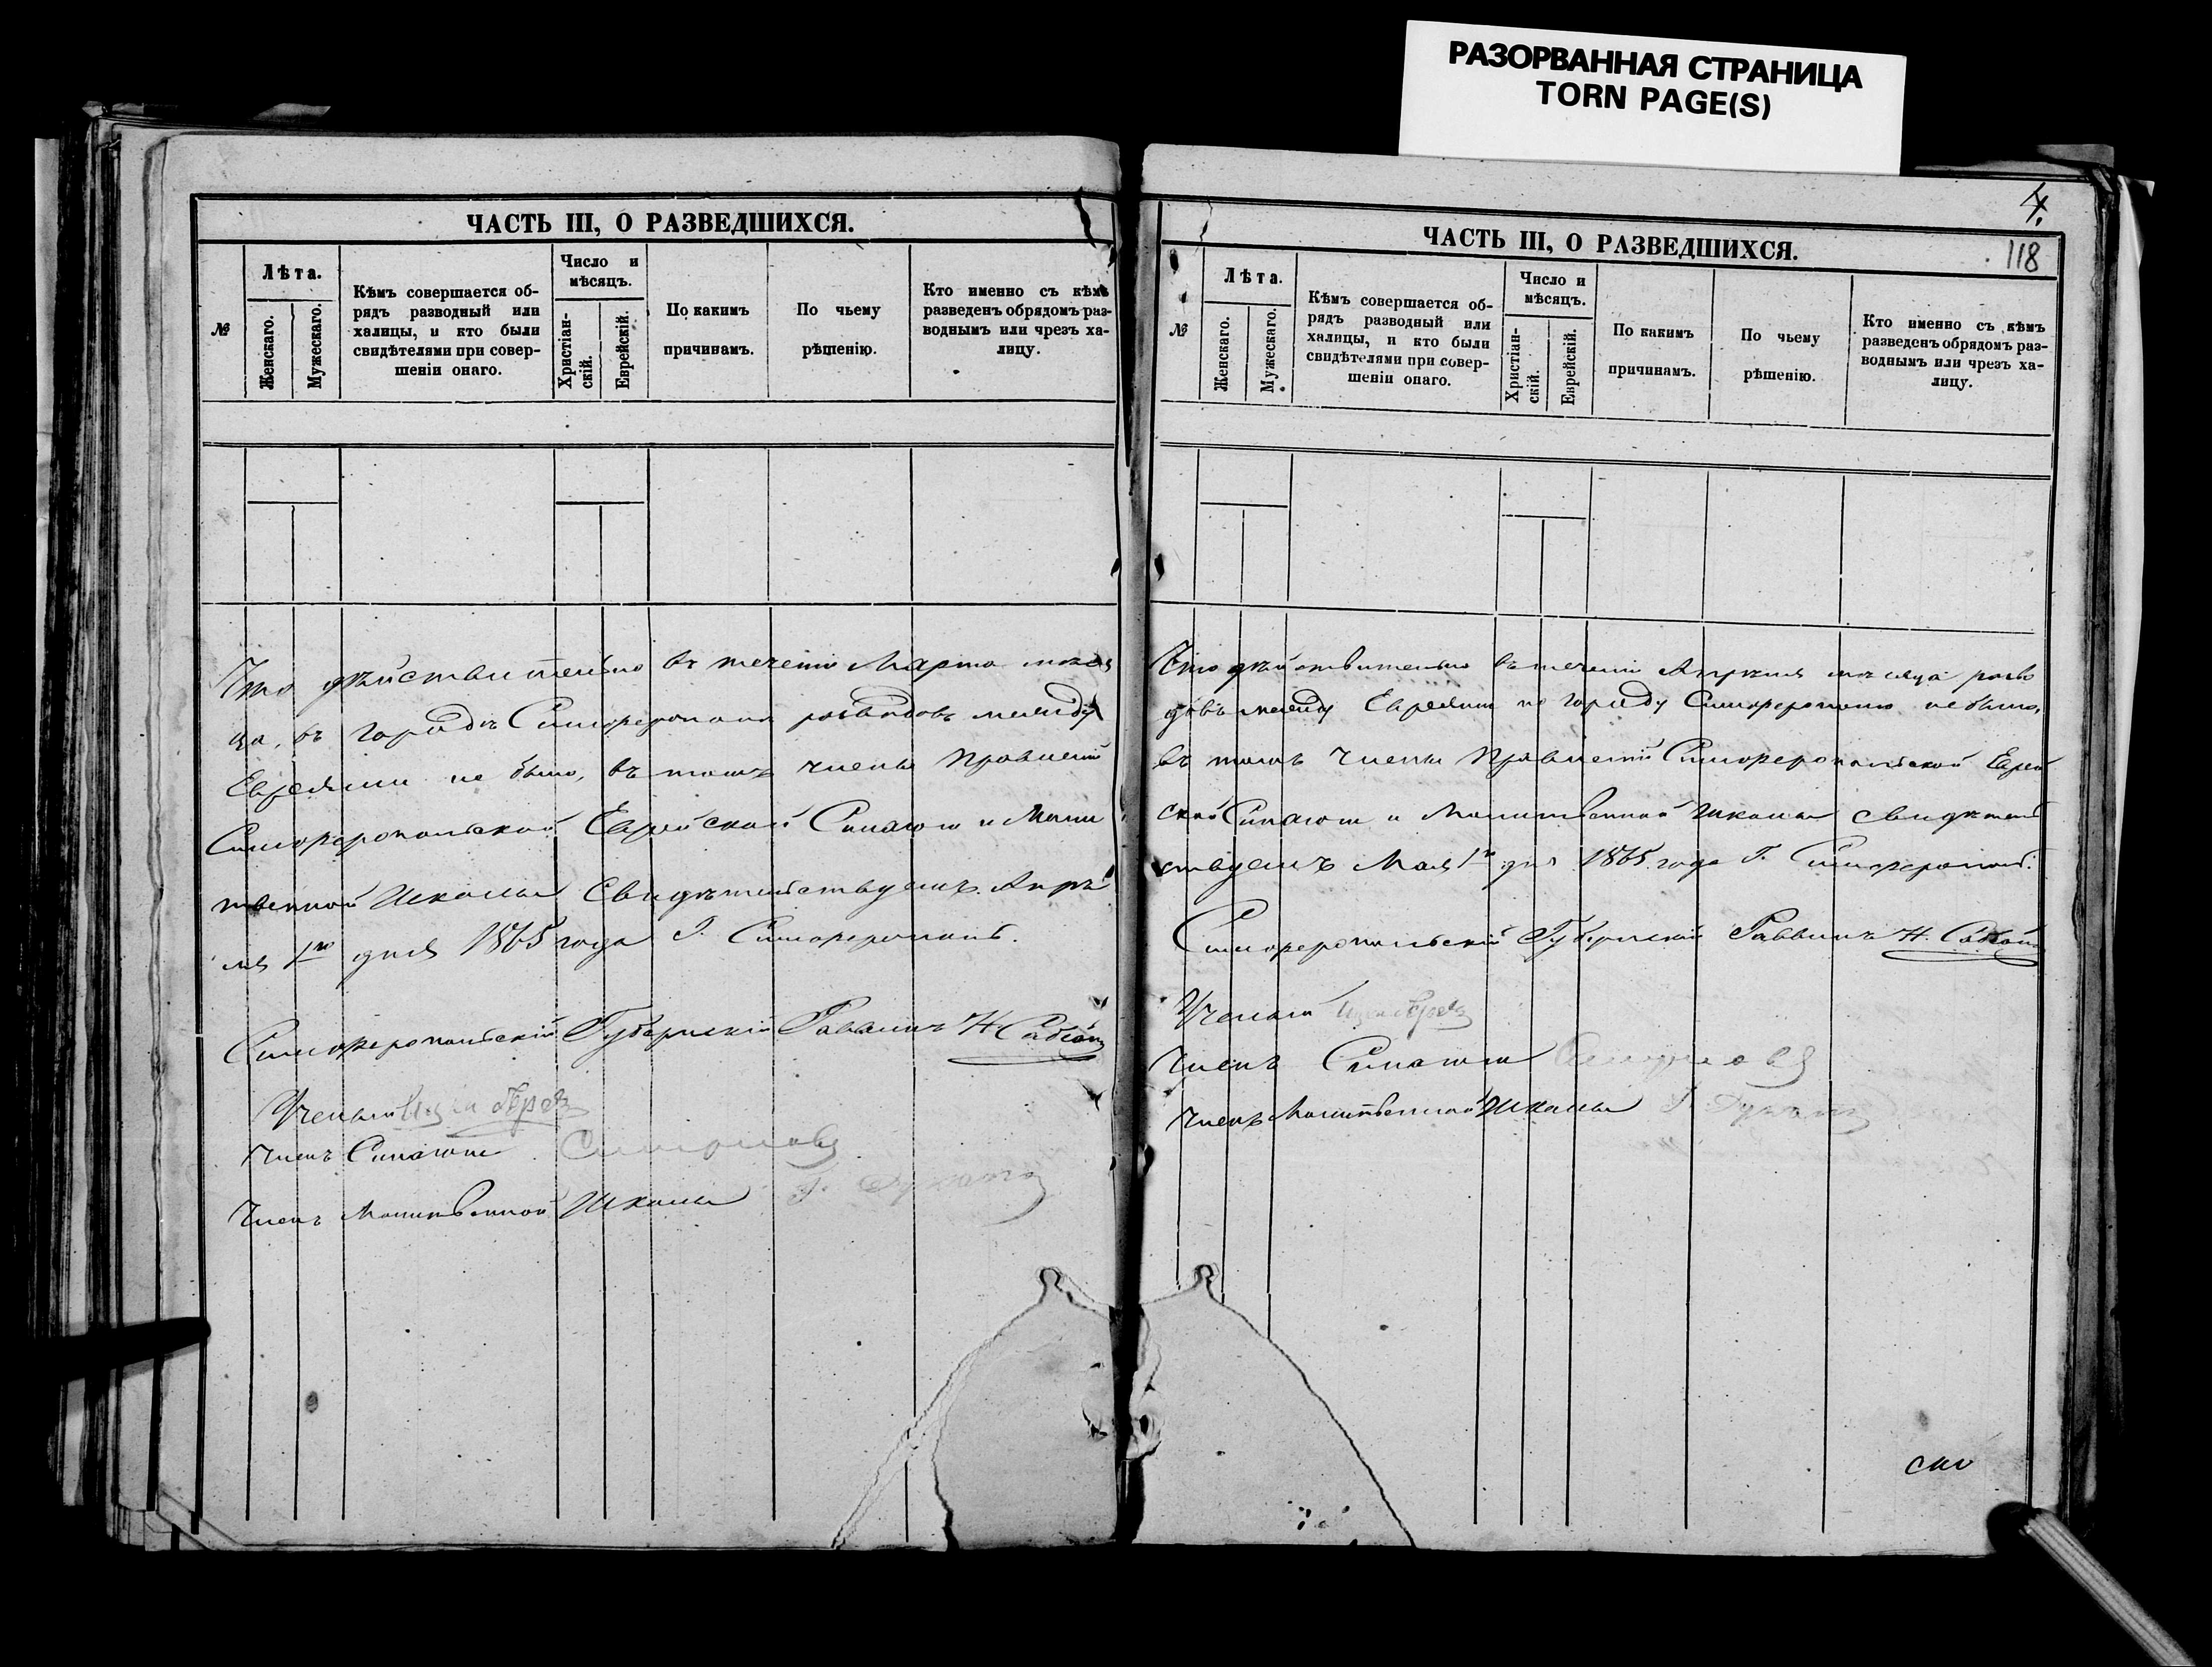 РАЗОРВАННАЯ СТРАНИЦА
TORN PAGE(S)
ЧАСТЬ III, О РАЗВЕДШИХСЯ.
№
Лѣта.
Женскаго.
Мужескаго.
Кѣмъ совершается об-
рядъ разводный или
халицы, и кто были
свидѣтелями при совер-
шеніи онаго.
Число и
мѣсяцъ.
Христіан-
скій.
Еврейскій.
По какимъ
причинамъ.
По чьему
рѣшенію.
Кто именно съ кѣмъ
разведенъ обрядомъ раз-
воднымъ или чрезъ ха-
лицу.
Что дѣйствительно въ теченіи Марта мѣся
ца, въ городѣ Симферополя разводовъ между
Евреями не было, въ томъ члены Правленія
Симферопольской Еврейской Синагоги и Моли
твенной Школы Свидѣтельствуемъ. Апрѣ
ля 1го дня 1865 года Г. Симферополь.
Симферопольскій Губернскій Раввинъ Н.
Ученый
Членъ Синагоги Симоновъ
Членъ Молитвенной Школы
4.
118
ЧАСТЬ III, О РАЗВЕДШИХСЯ.
№
Лѣта.
Женскаго.
Мужескаго.
Кѣмъ совершается об-
рядъ разводный или
халицы, и кто были
свидѣтелями при совер-
шеніи онаго.
Число и
мѣсяцъ.
Христіан-
скій.
Еврейскій.
По какимъ
причинамъ.
По чьему
рѣшенію.
Кто именно съ кѣмъ
разведенъ обрядомъ раз-
воднымъ или чрезъ ха-
лицу.
Что дѣйствительно въ теченіи Апрѣля мѣсяца разво
довъ между Евреями по городу Симферополю не было,
въ томъ Члены Правленія Симферопольской Еврей
ской Синагоги и Молитвенной Школы свидѣтель
ствуемъ Мая 1го дня 1865 года Г. Симферополь.
Симферопольскій Губернскій Раввинъ Н.
Ученый
Членъ Синагоги Симоновъ
Членъ Молитвенной Школы